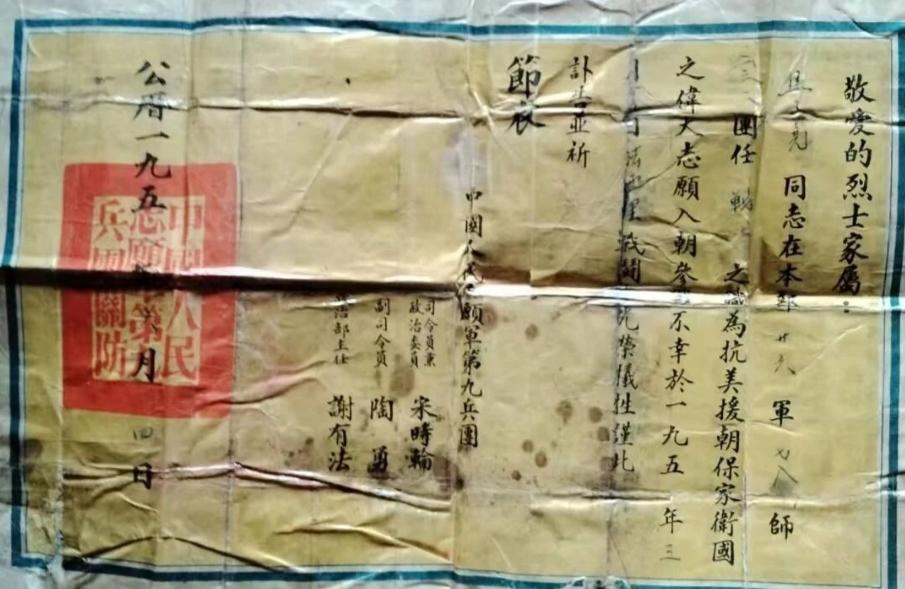 敬愛的烈士家屬：
同志在本部廿六軍七八師
二三 團任 戰士 之職為抗美援朝保家衛國
之偉大志願入朝參戰不幸於一九五 年三
月 日 里戰鬥光榮犧牲謹此
訃告並祈
節哀
中國人民志願軍第九兵團
司令員兼
政治委員 宋時輪
副司令員 陶勇
政治部主任 謝有法
公曆一九五 月 四日
中國人民
志願軍第九
兵團關防